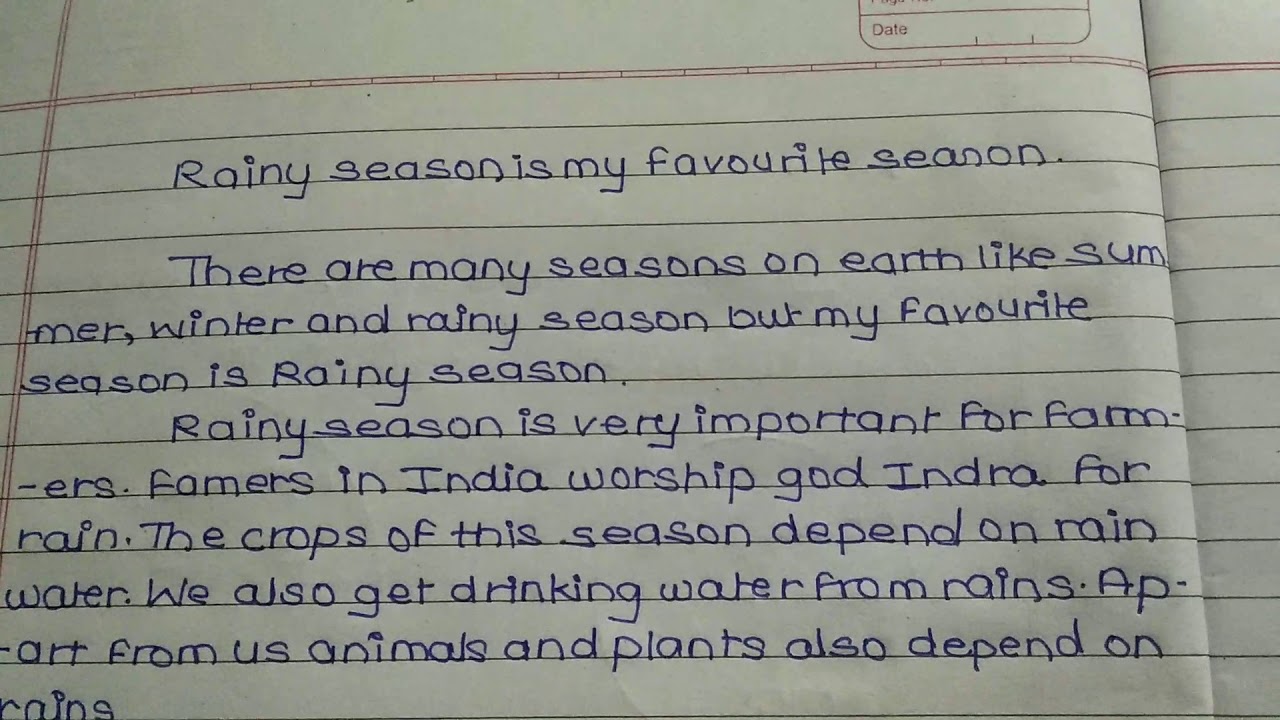 Date
Rainy season is my favourite seanon.
There are many seasons on earth like sum
-mer, winter and rainy season but my favourite
season is Rainy season.
Rainy season is very important for farm-
-ers. Famers in India worship god Indra for
rain. The crops of this season depend on rain
water. We also get drinking water from rains. Ap-
-art from us animals and plants also depend on
rains